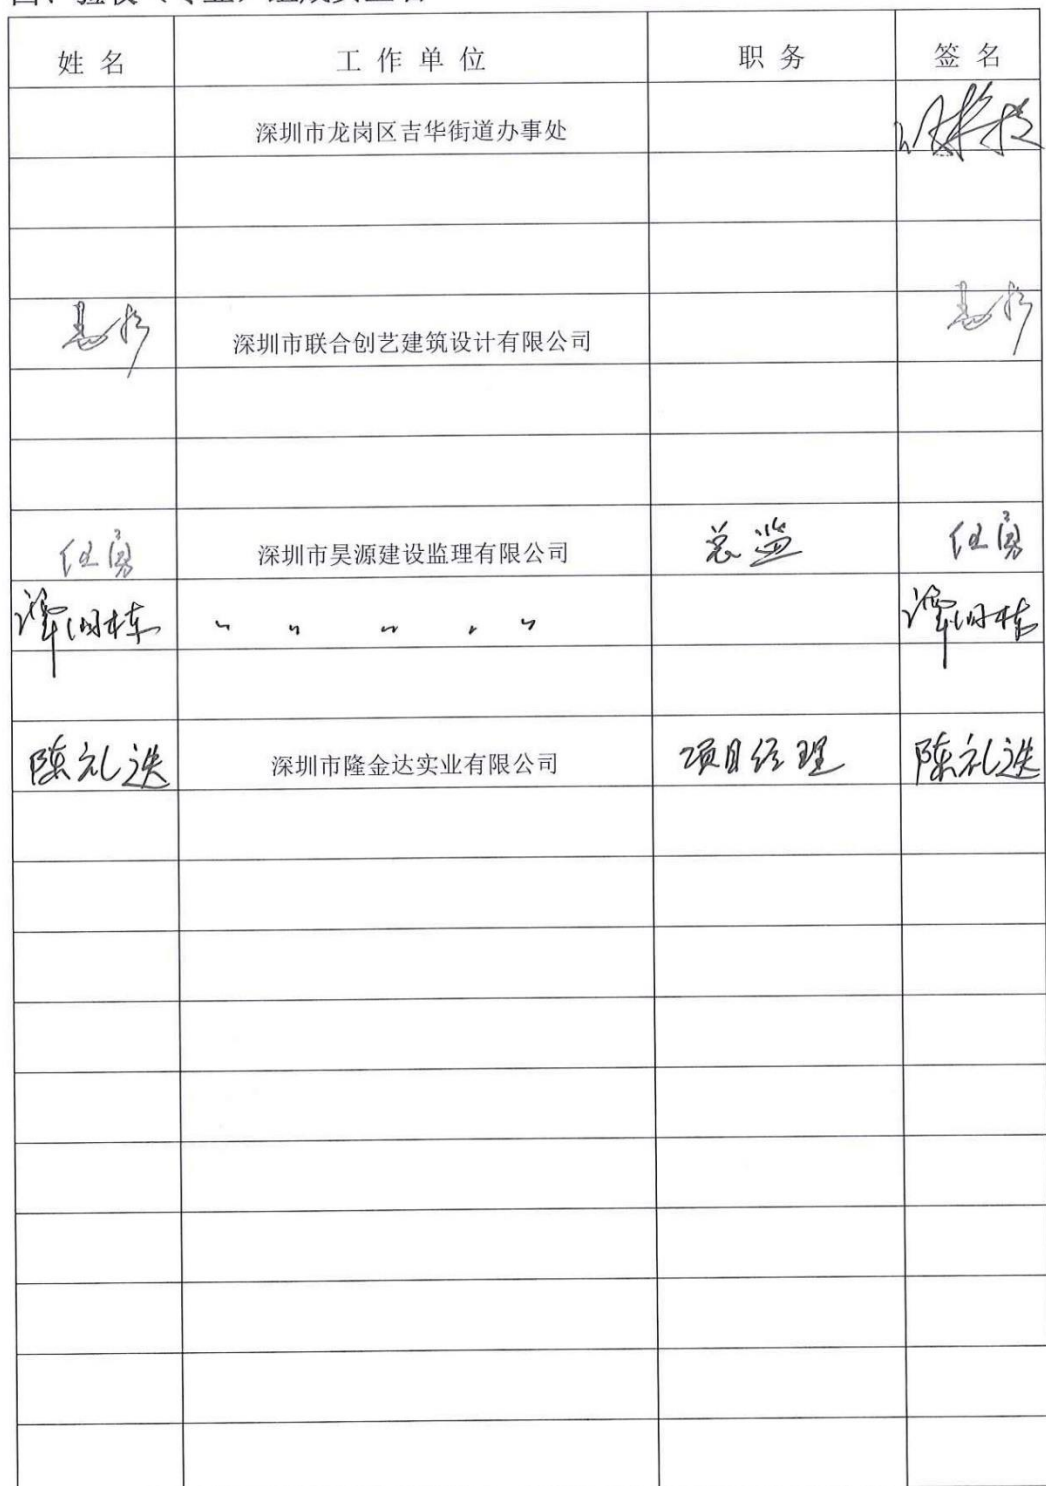 姓 名 工 作 单 位 职 务 签 名
深圳市龙岗区吉华街道办事处
深圳市联合创艺建筑设计有限公司
任勇 深圳市昊源建设监理有限公司 总监 任勇
〃 〃 〃 〃 〃
陈礼 深圳市隆金达实业有限公司 项目经理 陈礼